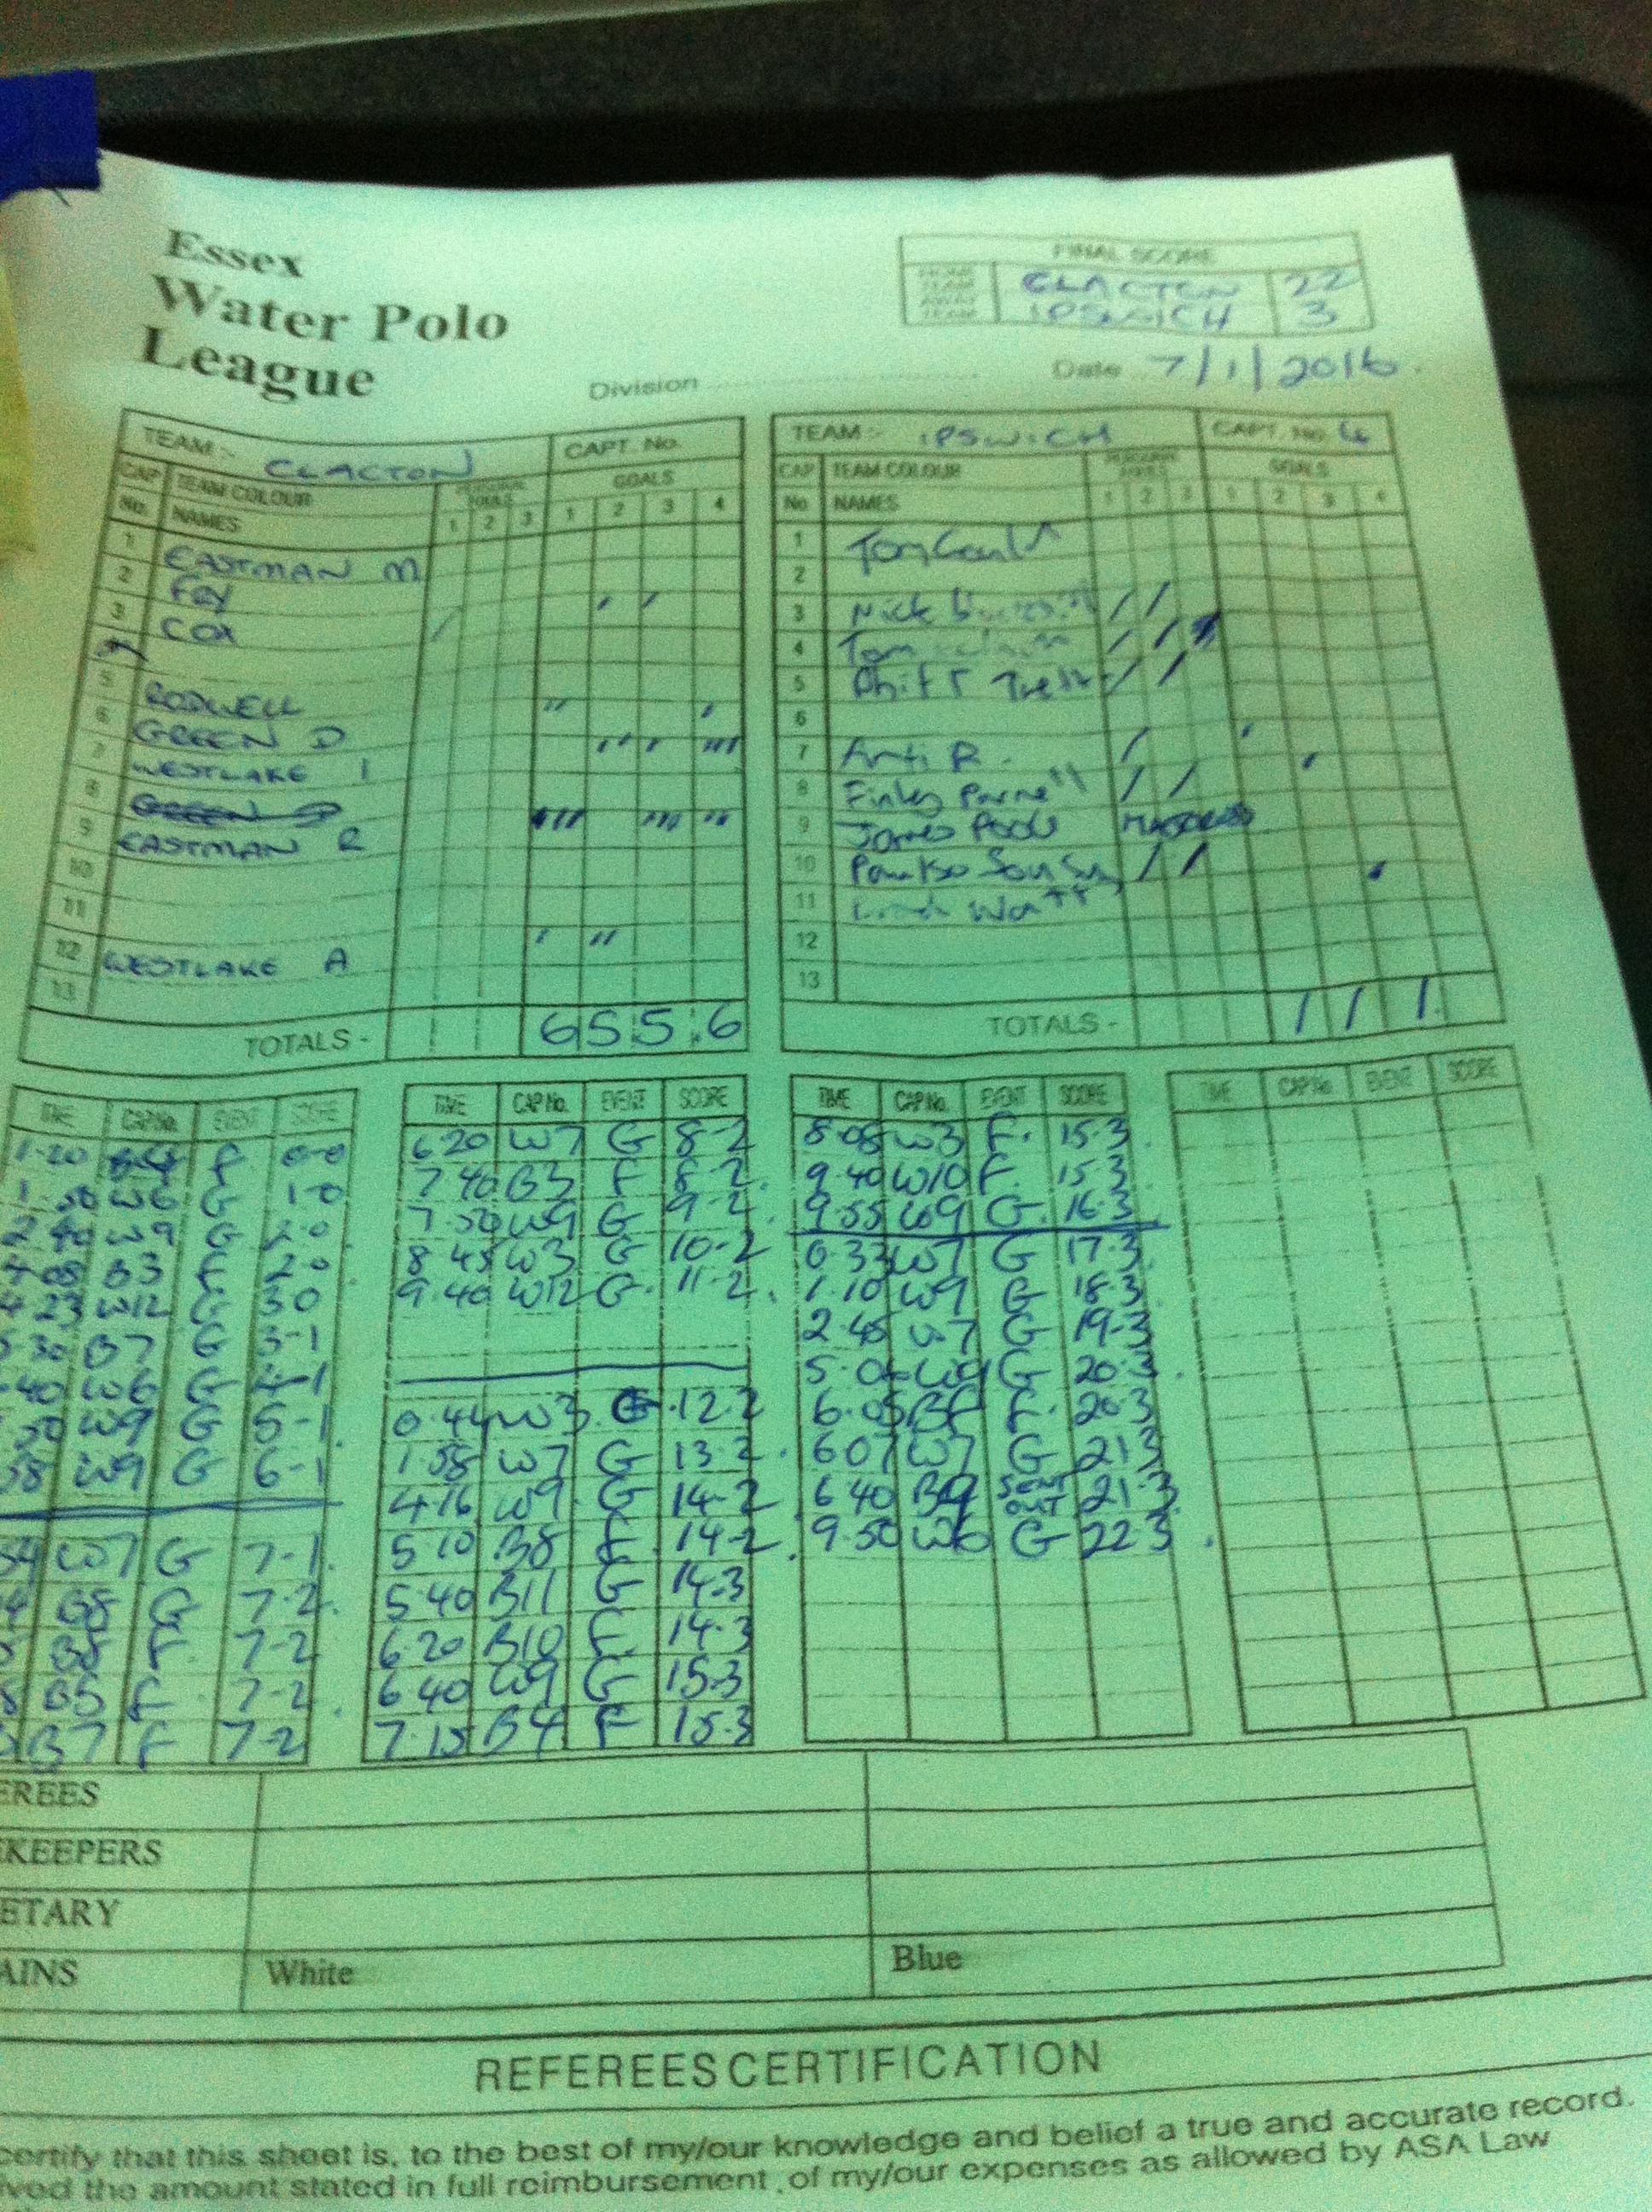 Essex
Water Polo
League
FINAL SCORE
HOME TEAM CLACTON 22
AWAY TEAM IPSWICH 3
Division
Date 7/1/2016.
TEAM:- CLACTON CAPT. No.
CAP No. TEAM COLOUR PERSONAL FOULS GOALS
NAMES 1 2 3 1 2 3 4
1 EASTMAN M
2 Fey
3 COX
5 RODWELL
6 GREEN D
7 WESTLAKE I
8
9 EASTMAN R
10
11
12 WESTLAKE A
13
TOTALS - 6 5 5 6
TEAM:- IPSWICH CAPT. No. 4
CAP No TEAM COLOUR PERSONAL FOULS GOALS
NAMES 1 2 3 1 2 3 4
1 Tom
2
3 Nick
4 Tom
5
6
7 Anti R.
8 Finley Parnell
9 James Poole
10
11 Watt
12
13
TOTALS - 1 1 1
TIME CAP No. EVENT SCORE
1.20 F 0-0
1.50 W6 G 1-0
2.40 W9 G 2-0
4.08 B3 F 2-0
4.23 W12 G 3-0
30 B7 G 3-1
40 W6 G 4-1
50 W9 G 5-1
58 W9 G 6-1
W7 G 7-1
B8 G 7-2
B8 F 7-2
B5 F 7-2
B7 F 7-2
TIME CAP No. EVENT SCORE
6.20 W7 G 8-2
7.40 B3 F 8-2
7.50 W9 G 9-2
8.45 W3 G 10-2
9.40 W12 G 11-2
0.44 W3 G 12-2
1.58 W7 G 13-2
4.16 W9 G 14-2
5.10 B8 F 14-2
5.40 B11 G 14-3
6.20 B10 F 14-3
6.40 W9 G 15-3
7.15 B4 F 15-3
TIME CAP No. EVENT SCORE
8.08 W3 F. 15-3
9.40 W10 F. 15-3
9.55 W9 G. 16-3
0.33 W7 G 17-3
1.10 W9 G 18-3
2.45 W7 G 19-3
W9 G 20-3
6.05 B8 F. 20-3
6.07 W7 G 21-3
6.40 B9 SENT OUT 21-3
9.50 W6 G 22-3
TIME CAP No. EVENT SCORE
EREES
KEEPERS
ETARY
AINS White Blue
REFEREES CERTIFICATION
certify that this sheet is, to the best of my/our knowledge and belief a true and accurate record.
ived the amount stated in full reimbursement, of my/our expenses as allowed by ASA Law